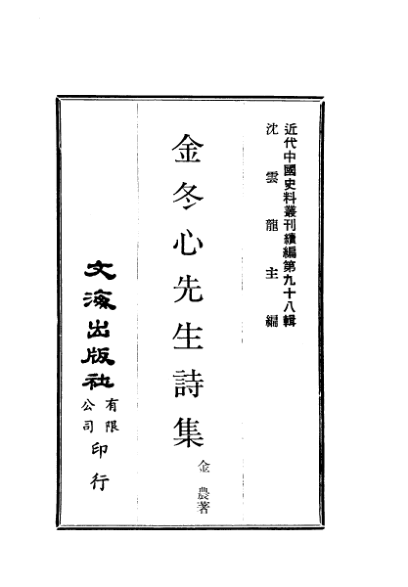 近代中國史料叢刊續編第九十八輯
沈雲龍主編
金冬心先生詩集
金農著
文海出版社
有限公司
印行